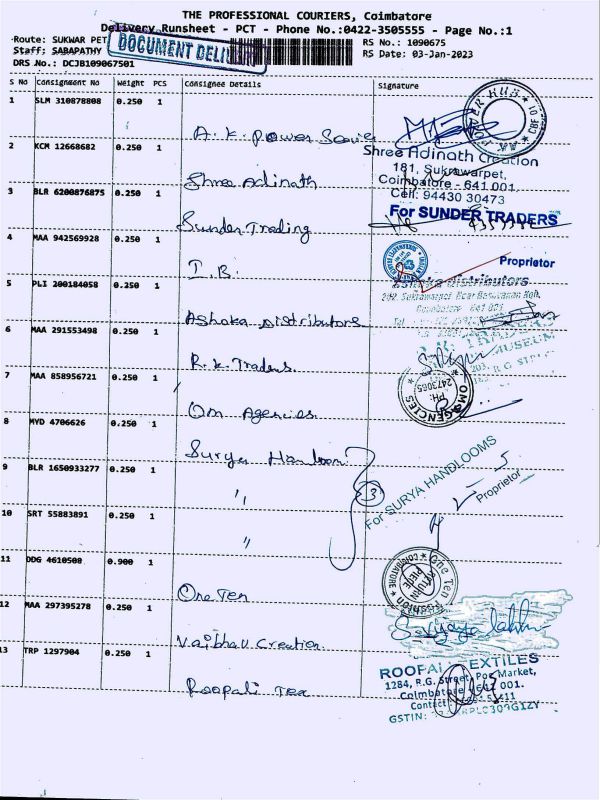 THE PROFESSIONAL COURIERS, Coimbatore
Delivery Runsheet - PCT - Phone No.:0422-3505555 - Page No.:1
Route: SUKWAR PET
RS No.: 1090675
Staff: SABAPATHY
RS Date: 03-Jan-2023
DOCUMENT
DRS No.: DCJB109067501
S No Consignment No Weight PCS Consignee Details Signature
1 SLM 310878808 0.250 1
A.K. Power
2 KCM 12668682 0.250 1
Shree Adinath
Shree Adinath Creation
181, Sukrawarpet,
Coimbatore - 641 001,
Cell: 94430 30473
3 BLR 6200876875 0.250 1
Sunder Trading
For SUNDER TRADERS
4 MAA 942569928 0.250 1
Proprietor
5 PLI 200184058 0.250 1
Ashoka Distributors
Ashoka Distributors
6 MAA 291553498 0.250 1
R.K. Traders
7 MAA 858956721 0.250 1
Om Agencies
OM AGENCIES
PH: 2473065
8 MYD 4706626 0.250 1
Surya
For SURYA HANDLOOMS
Proprietor
9 BLR 1650933277 0.250 1
"
3
10 SRT 55883891 0.250 1
"
11 DDG 4610508 0.900 1
One Ten
One Ten Fashion
COIMBATORE
12 MAA 297395278 0.250 1
Vaibhav Creation
13 TRP 1297904 0.250 1
Roopali Tex
1284, R.G. Street, Market,
Coimbatore 001.
Contact
GSTIN: